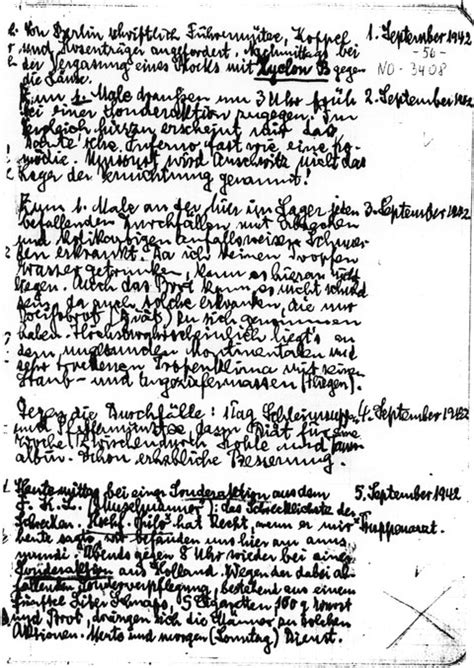 Von Berlin schriftlich Führermütze, Koppel
1. September 1942
und Hosenträger angefordert. Nachmittags bei
- 50 -
der Vergasung eines Blocks mit Zyclon B gegen
NO-3408
die Läuse.
Zum 1. Male draußen um 3 Uhr früh
2. September 1942
bei einer Sonderaktion zugegen. Im
Vergleich hierzu erscheint mir das
Dante'sche Inferno fast wie eine Ko-
mödie. Umsonst wird Auschwitz nicht das
Lager der Vernichtung genannt!
Zum 1. Male an der hier im Lager jeden
3. September 1942
befallenden Durchfällen mit Erbrechen
und kolikartigen anfallsweisen Schmer-
zen erkrankt. Da ich keinen Tropfen
Wasser getrunken, kann es hieran nicht
liegen. Auch das Brot kann es nicht schuld
sein, da auch solche erkranken, die nur
Weißbrot (Diät) zu sich genommen
haben. Höchstwahrscheinlich liegt's an
dem ungesunden kontinentalen und
sehr trockenen Tropenklima mit seinen
Staub- und Ungeziefermassen (Fliegen).
Gegen die Durchfälle: 1 Tag Schleimsuppe
4. September 1942
und Pfefferminztee, dann Diät für eine
Woche. Zwischendurch Kohle und Tan-
albin. Schon erhebliche Besserung.
Heute mittag bei einer Sonderaktion aus dem
5. September 1942
F.K.L. (Muselmänner): das Schrecklichste der
Schrecken. Hschf. Thilo hat Recht, wenn er mir
Truppenarzt.
heute sagte, wir befänden uns hier am anus
mundi. Abends gegen 8 Uhr wieder bei einer
Sonderaktion aus Holland. Wegen der dabei ab-
fallenden Sonderverpflegung, bestehend aus einem
fünftel Liter Schnaps, 5 Zigaretten, 100 g Wurst
und Brot, drängen sich die Männer zu solchen
Aktionen. Heute und morgen (Sonntag) Dienst.